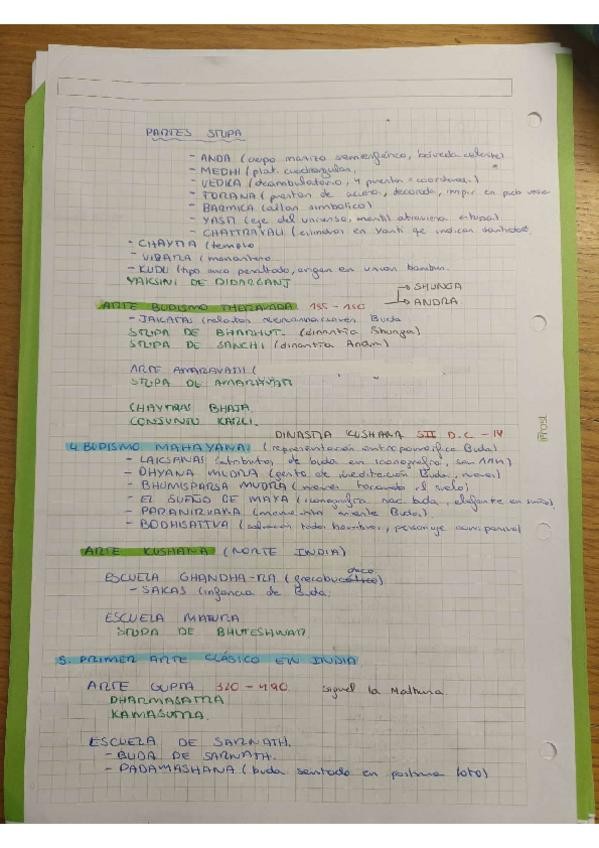 PARTES STUPA
- ANDA (cuerpo macizo semiesférico, bóveda celeste)
- MEDHI (plat. cuadrangular,
- VEDIKA (deambulatorio, 4 puertas = coordenad.)
- TORANA (puertas de acceso, decorada,
- BARMICA (altar simbólico)
- YASTI (eje del universo, mástil atraviesa stupa)
- CHATTRAVALI (cilindros en Yasti qe indican santidad.
- CHAYTIA (templo
- VIHARA (monasterio
- KUDU (tipo arco peraltado, origen en union bambu.
YAKSINI DE DIDARGANJ
SHUNGA
ARTE BUDISMO THERAVADA 185 - 150
ANDRA
- JAKATAS (relatos reencarnaciones Buda
STUPA DE BHARHUT. (dinantía Shunga)
STUPA DE SANCHI (dinantía Andra)
ARTE AMARAVATI (
STUPA DE AMARAVATI
CHAYTIAS BHAJA.
CONJUNTO KARLI.
DINASTIA KUSHANA SII D.C - IV
4. BUDISMO MAHAYANA: (representación antropomórfica Buda)
- LAKSANAS (atributos de buda en iconografía, son
- DHYANA MUDRA (gesto de meditación Buda,
- BHUMISPARSA MUDRA (manos tocando el suelo)
- EL SUEÑO DE MAYA (iconografía nac. buda, elefante en sueño)
- PARANIRVANA (momento muerte Buda)
- BODHISATTVA (salvación todos hombres, personaje
ARTE KUSHANA (NORTE INDIA)
ESCUELA GHANDHA-RA (grecobudico)
- SAKAS (infancia de Buda.
ESCUELA MATURA
STUPA DE BHUTESHWAR
5. PRIMER ARTE CLÁSICO EN INDIA
ARTE GUPTA 320 - 490 siguel la Mathura.
DHARMASASTRA
KAMASUTRA.
ESCUELA DE SARNATH.
- BUDA DE SARNATH.
- PADAMASHANA (buda sentado en postura loto)